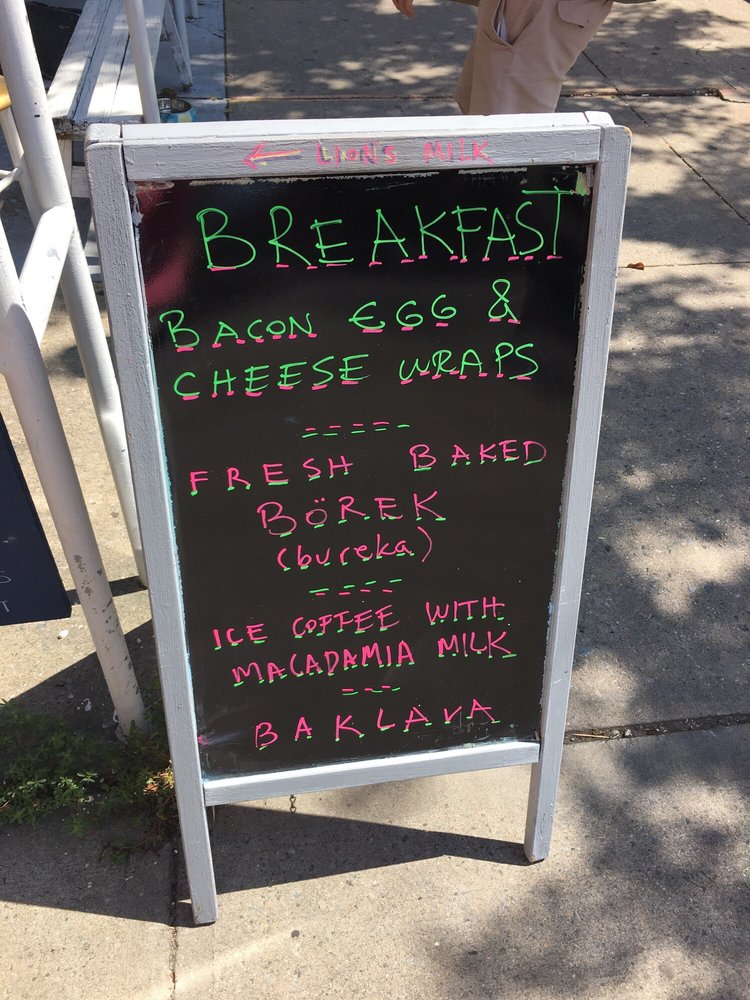 ← LIONS MILK
BREAKFAST
BACON EGG &
CHEESE WRAPS
FRESH BAKED
BÖREK
(bureka)
ICE COFFEE WITH
MACADAMIA MILK
BAKLAVA
S
T